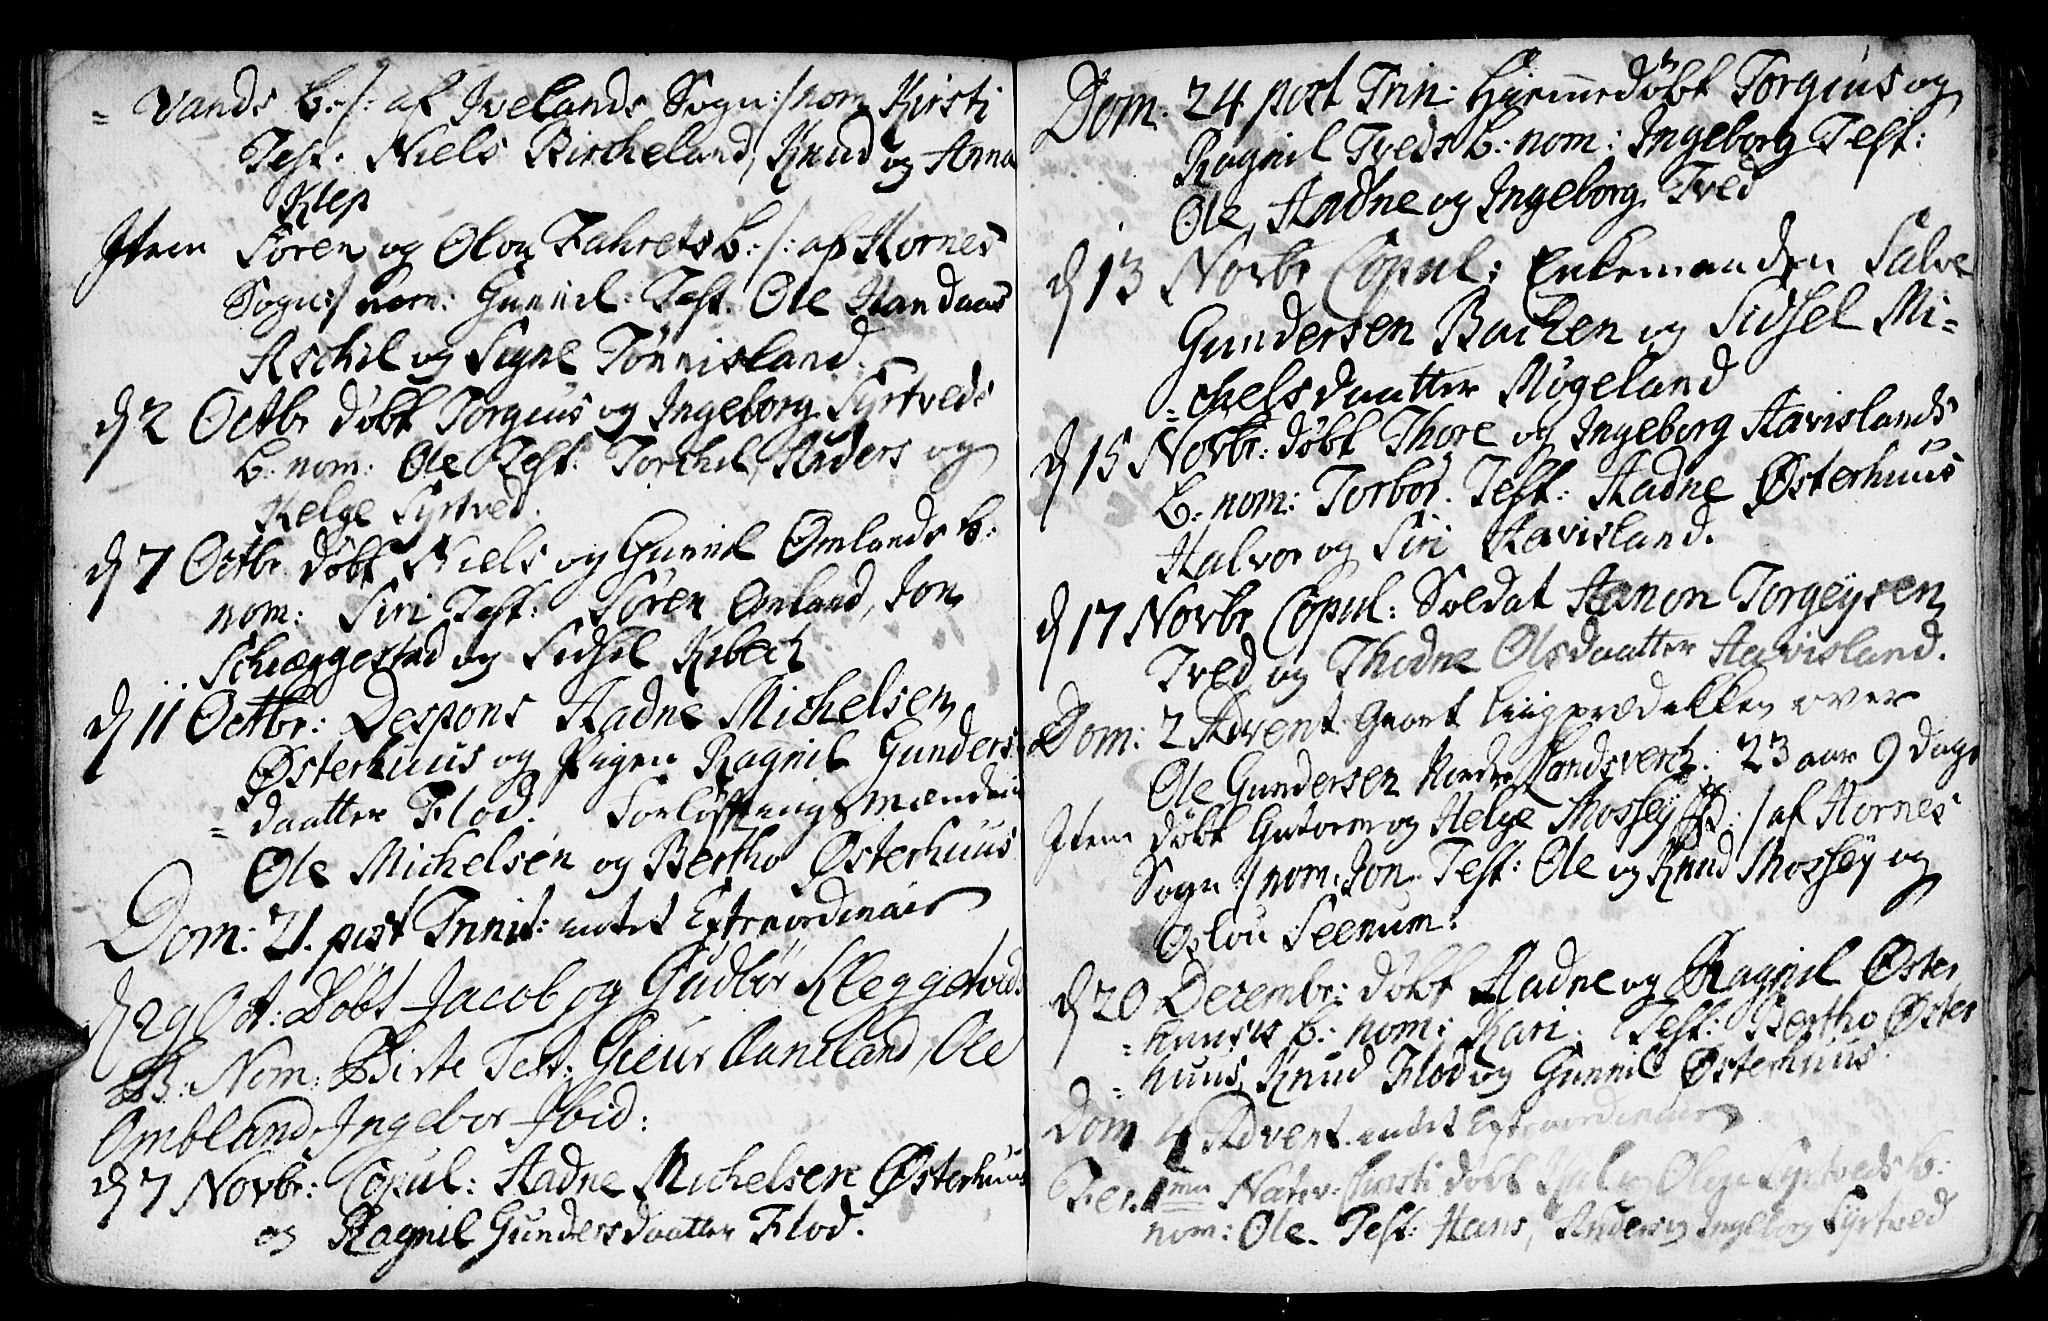 = Vands B: /: af Ivelands Sogn :/ nom Kirsti
Test. Niels Bircheland, Knud og Anna
Klep
Item Sören og Olou Fahrets B: /: af Hornes
Sogn :/ nom: Gunnil: Test. Ole Handaas
Aschil og Signe Tönnisland.
d 2 Octbr döbt Torgius og Ingeborg Syrtveds
B. nom: Ole Test: Torchil, Anders og
Helge Syrtved.
d 7 Octbr. döbt Niels og Gunnil Omlands B:
nom: Siri Test: Sören Omland, Jon
Schiæggestad og Sidsel Kibech
d 11 Octbr: Despons Aadne Michelsen
Østerhuus og Pigen Ragnil Gunders
= daatter Flod. Forlöftningsmændene
Ole Michelsen og Bertho Østerhuus
Dom: 21. post Trinit: intet Extraordinair
d 29 Oct: Döbt Jacob og Gudbör Kleggetveds
B: Nom: Birte Test: Gieur Caneland, Ole
Ombland, Ingebor Ibid:
d 7 Novbr: Copul: Aadne Michelsen Østerhuus
og Ragnil Gundersdaatter Flod.
Dom: 24 post Trin: Hiemedöbt Torgius og
Ragnil Tveds B: nom: Ingeborg Test:
Ole, Aadne og Ingeborg Tved
d 13 Novbr Copul: Enkemanden Salve
Gundersen Bachen og Sidsel Mi=
= chelsdaatter Mögeland
d 15 Novbr: döbt Thore og Ingeborg Aavislands
B: nom: Torbor. Test: Aadne Østerhuus
Halvor og Siri Aavisland.
d 17 Novbr Copul: Soldat Aanon Torgeÿsen
Tved og Thodne Olsdaatter Aavisland.
Dom: 2 Advent. Giort Liigprædikken over
Ole Gundersen Nordre Landsverch: 23 aar 9 dage
Item döbt Gutorm og Helge Mosseÿ B: / af Hornes
Sogn :/ nom. Jon. Test: Ole og Knud Mosseÿ og
Oslou Seenum.
d 20 Decembr: döbt Aadne og Ragnil Øster
= huuses B: nom: Kari. Test: Bertho Øster
= huus, Knud Flod og Gunnil Østerhuus.
Dom 4 Advent. intet Extraordinair
Fer. 1ma Nativ: Christi döbt Syrtveds B:
nom: Ole. Test: Hans, Anders og Ingeborg Syrtved